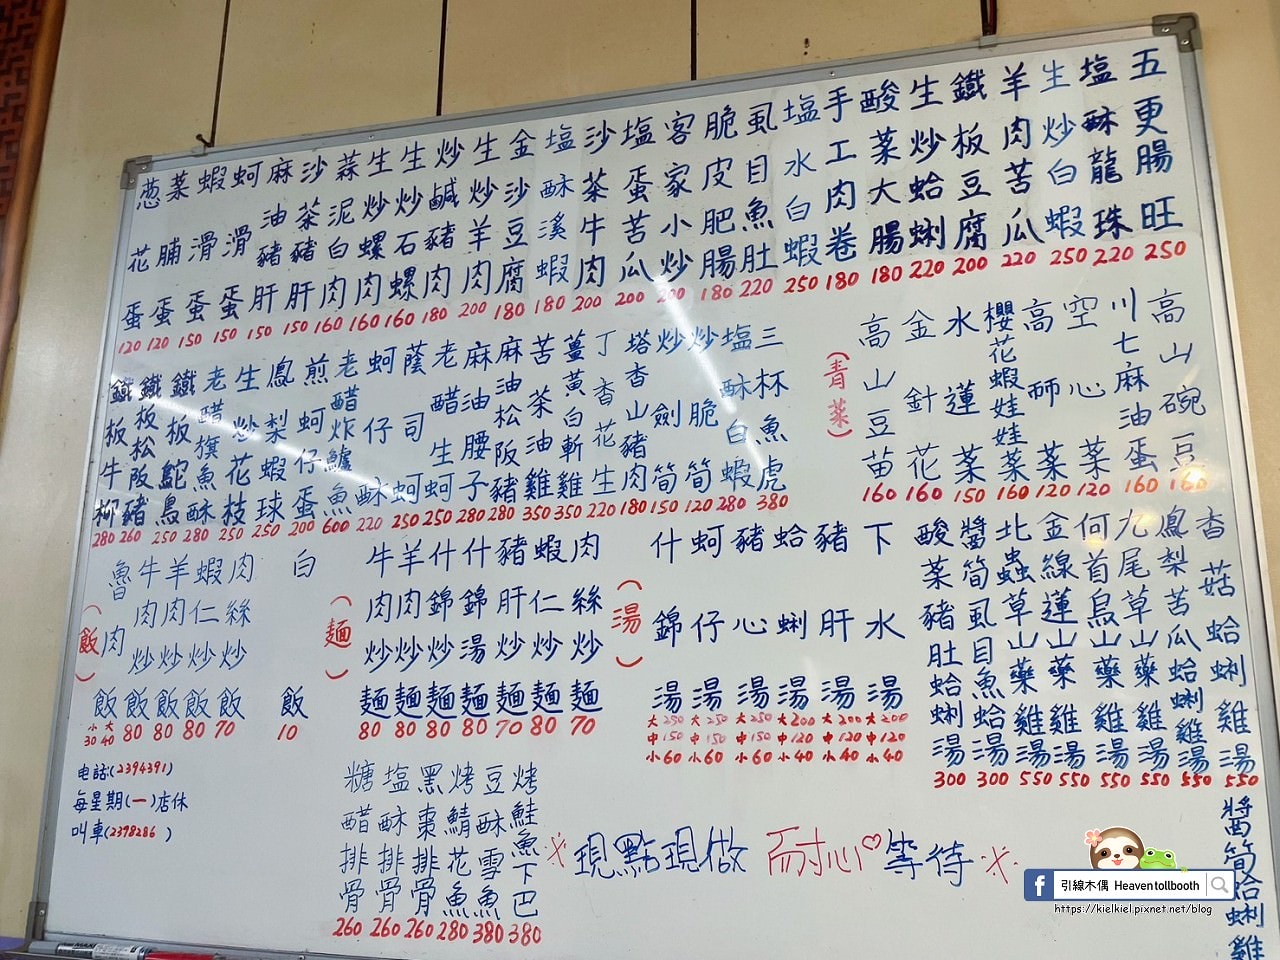 葱花蛋 120
菜脯蛋 120
蝦滑蛋 150
蚵滑蛋 150
麻油豬肝 150
沙茶豬肝 150
蒜泥白肉 160
生炒螺肉 160
生炒石螺 160
炒鹹豬肉 180
生炒羊肉 200
金沙豆腐 180
塩酥溪蝦 180
沙茶牛肉 200
塩蛋苦瓜 200
客家小炒 200
脆皮肥腸 180
虱目魚肚 220
塩水白蝦 250
手工肉卷 180
酸菜大腸 180
生炒蛤蜊 220
鐵板豆腐 200
羊肉苦瓜 220
生炒白蝦 250
塩酥龍珠 220
五更腸旺 250
鐵板牛柳 280
鐵板松阪豬 260
鐵板鴕鳥 250
老醋旗魚酥 280
生炒花枝 250
鳳梨蝦球 250
煎蚵仔蛋 200
老醋炸鱸魚 600
蚵仔酥 220
蔭司蚵 250
老醋生蚵 250
麻油腰子 280
麻油松阪豬 280
苦茶油雞 350
薑黃白斬雞 350
丁香花生 220
塔香山豬肉 180
炒劍筍 150
炒脆筍 120
塩酥白蝦 280
三杯魚虎 380
(青菜)
高山豆苗 160
金針花 160
水蓮菜 150
櫻花蝦娃娃菜 160
高師菜 120
空心菜 120
川七麻油蛋 160
高山碗豆 160
(飯)
魯肉飯 小30 大40
牛肉炒飯 80
羊肉炒飯 80
蝦仁炒飯 80
肉絲炒飯 70
白飯 10
(麵)
牛肉炒麵 80
羊肉炒麵 80
什錦炒麵 80
什錦湯麵 80
豬肝炒麵 70
蝦仁炒麵 80
肉絲炒麵 70
(湯)
什錦湯 大250 中150 小60
蚵仔湯 大250 中150 小60
豬心湯 大250 中150 小60
蛤蜊湯 大200 中120 小40
豬肝湯 大200 中120 小40
下水湯 大200 中120 小40
酸菜豬肚蛤蜊湯 300
醬筍虱目魚蛤湯 300
北蟲草山藥雞湯 550
金線蓮山藥雞湯 550
何首烏山藥雞湯 550
九尾草山藥雞湯 550
鳳梨苦瓜蛤蜊雞湯 550
香菇蛤蜊雞湯 550
醬筍蛤蜊雞
电話:(2394391)
每星期(一)店休
叫車(2398286)
糖醋排骨 260
塩酥排骨 260
黑棗排骨 260
烤鯖花魚 280
豆酥雪魚 380
烤鮭魚下巴 380
※現點現做 耐心♡等待※
引線木偶 Heaven tollbooth
https://kielkiel.pixnet.net/blog